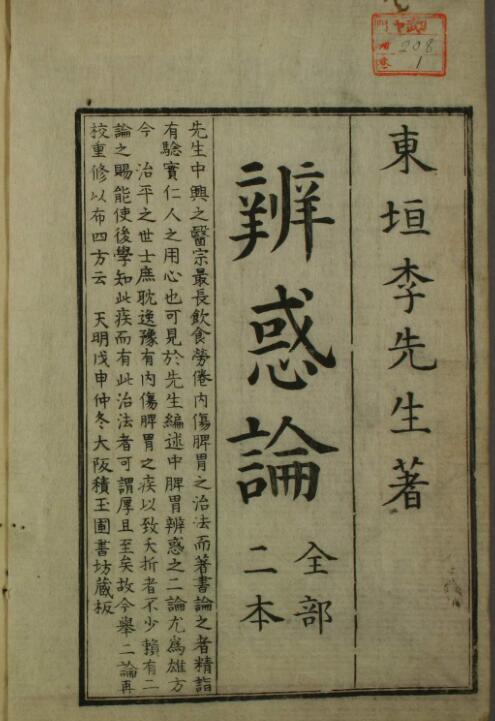 208
1
東垣李先生著
辨惑論
全部
二本
先生中興之醫宗最長飲食勞倦內傷脾胃之治法而著書論之者精詣
有驗實仁人之用心也可見於先生編述中脾胃辨惑之二論尤為雄方
今 治平之世士庶耽逸豫有內傷脾胃之疾以致夭折者不少賴有二
論之賜能使後學知此疾而有此治法者可謂厚且至矣故今舉二論再
校重修以布四方云 天明戊申仲冬大阪積玉圃書坊蔵板